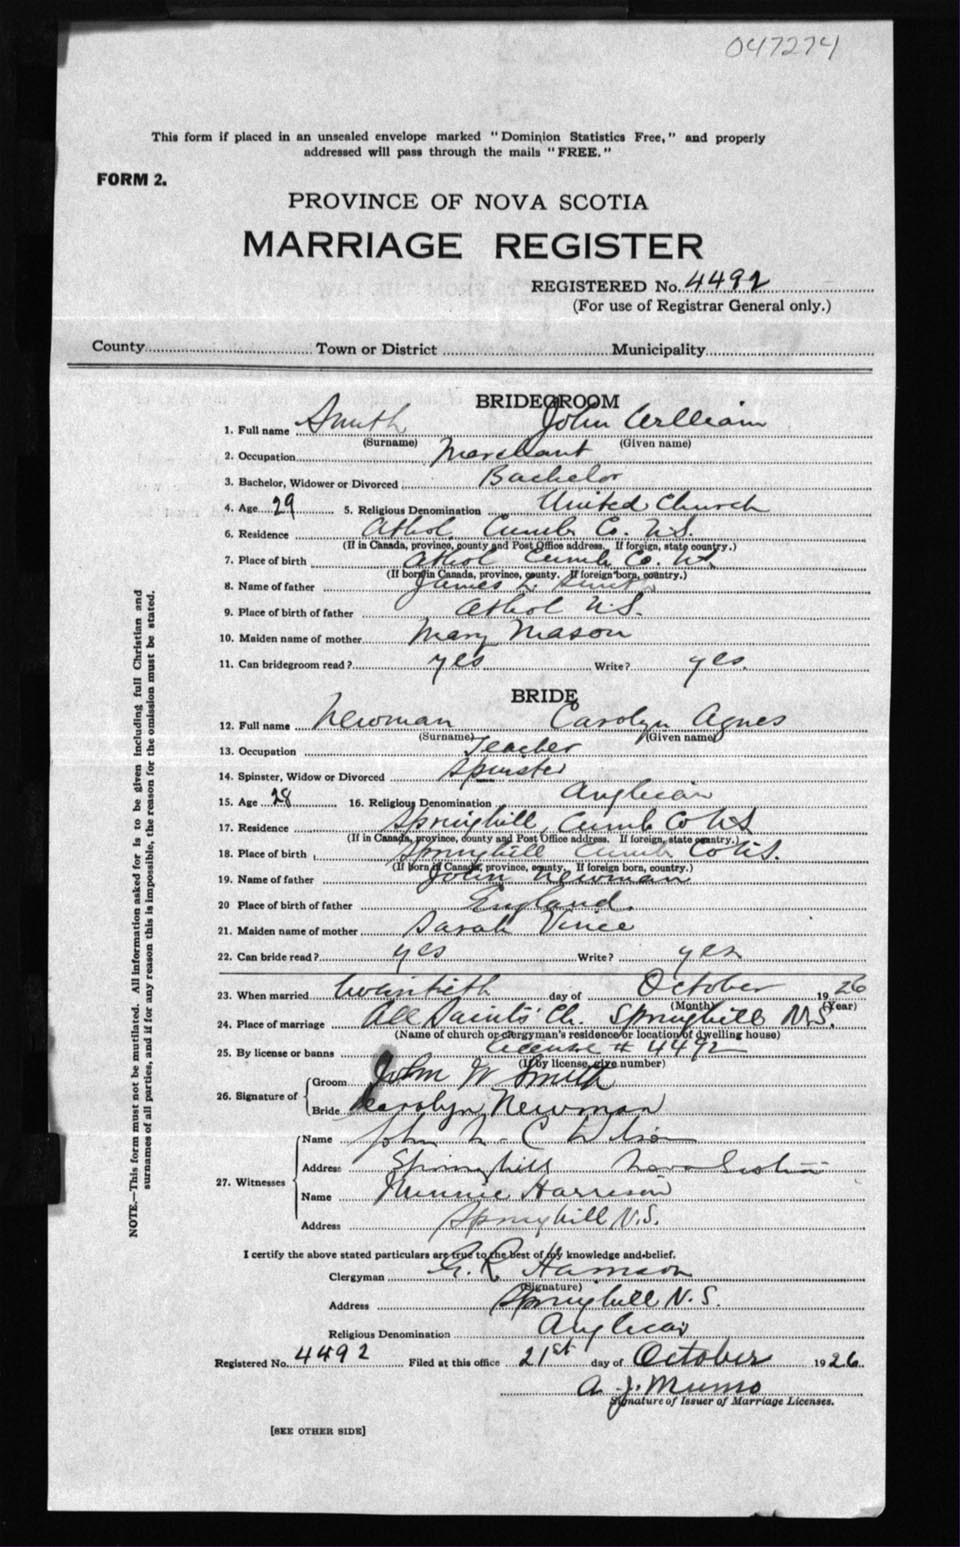 047274
This form if placed in an unsealed envelope marked "Dominion Statistics Free," and properly
addressed will pass through the mails "FREE."
FORM 2.
PROVINCE OF NOVA SCOTIA
MARRIAGE REGISTER
REGISTERED No. 4492
(For use of Registrar General only.)
County Town or District Municipality
BRIDEGROOM
1. Full name Smith John William
(Surname) (Given name)
2. Occupation Merchant
3. Bachelor, Widower or Divorced Bachelor
4. Age 29 5. Religious Denomination United Church
6. Residence Athol, Cumb Co. N.S.
(If in Canada, province, county and Post Office address. If foreign, state country.)
7. Place of birth Athol Cumb Co. N.S.
(If born in Canada, province, county. If foreign born, country.)
8. Name of father James L Smith
9. Place of birth of father Athol N.S.
10. Maiden name of mother Mary Mason
11. Can bridegroom read? yes Write? yes.
BRIDE
12. Full name Newman Carolyn Agnes
(Surname) (Given name)
13. Occupation Teacher
14. Spinster, Widow or Divorced Spinster
15. Age 28 16. Religious Denomination Anglican
17. Residence Springhill, Cumb Co N.S
(If in Canada, province, county and Post Office address. If foreign, state country.)
18. Place of birth Springhill Cumb. Co N.S.
(If born in Canada, province, county. If foreign born, country.)
19. Name of father John Newman
20 Place of birth of father England.
21. Maiden name of mother Sarah Vince
22. Can bride read? yes Write? yes
23. When married twentieth day of October 1926
(Month) (Year)
24. Place of marriage All Saints Ch. Springhill N.S.
(Name of church or clergyman's residence or location of dwelling house)
25. By license or banns License # 4492
(If by license, give number)
26. Signature of Groom John W Smith
Bride Carolyn Newman
27. Witnesses
Name John Wilson
Address Springhill Nova Scotia
Name Minnie Harrison
Address Springhill N.S.
I certify the above stated particulars are true to the best of my knowledge and belief.
Clergyman G. R. Harrison
(Signature)
Address Springhill N.S.
Religious Denomination Anglican
Registered No. 4492 Filed at this office 21st day of October 1926
A. J. Munro
Signature of Issuer of Marriage Licenses.
[SEE OTHER SIDE]
NOTE.—This form must not be mutilated. All information asked for is to be given including full Christian and
surnames of all parties, and if for any reason this is impossible, the reason for the omission must be stated.